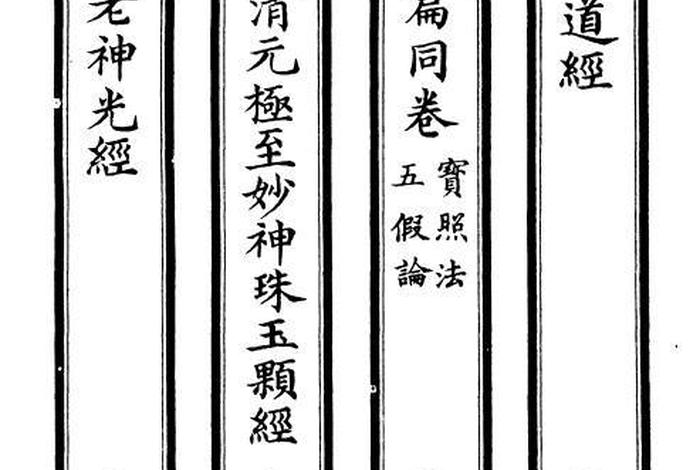 道經
篇同卷
寶照法
五假論
清元極至妙神珠玉顆經
老神光經